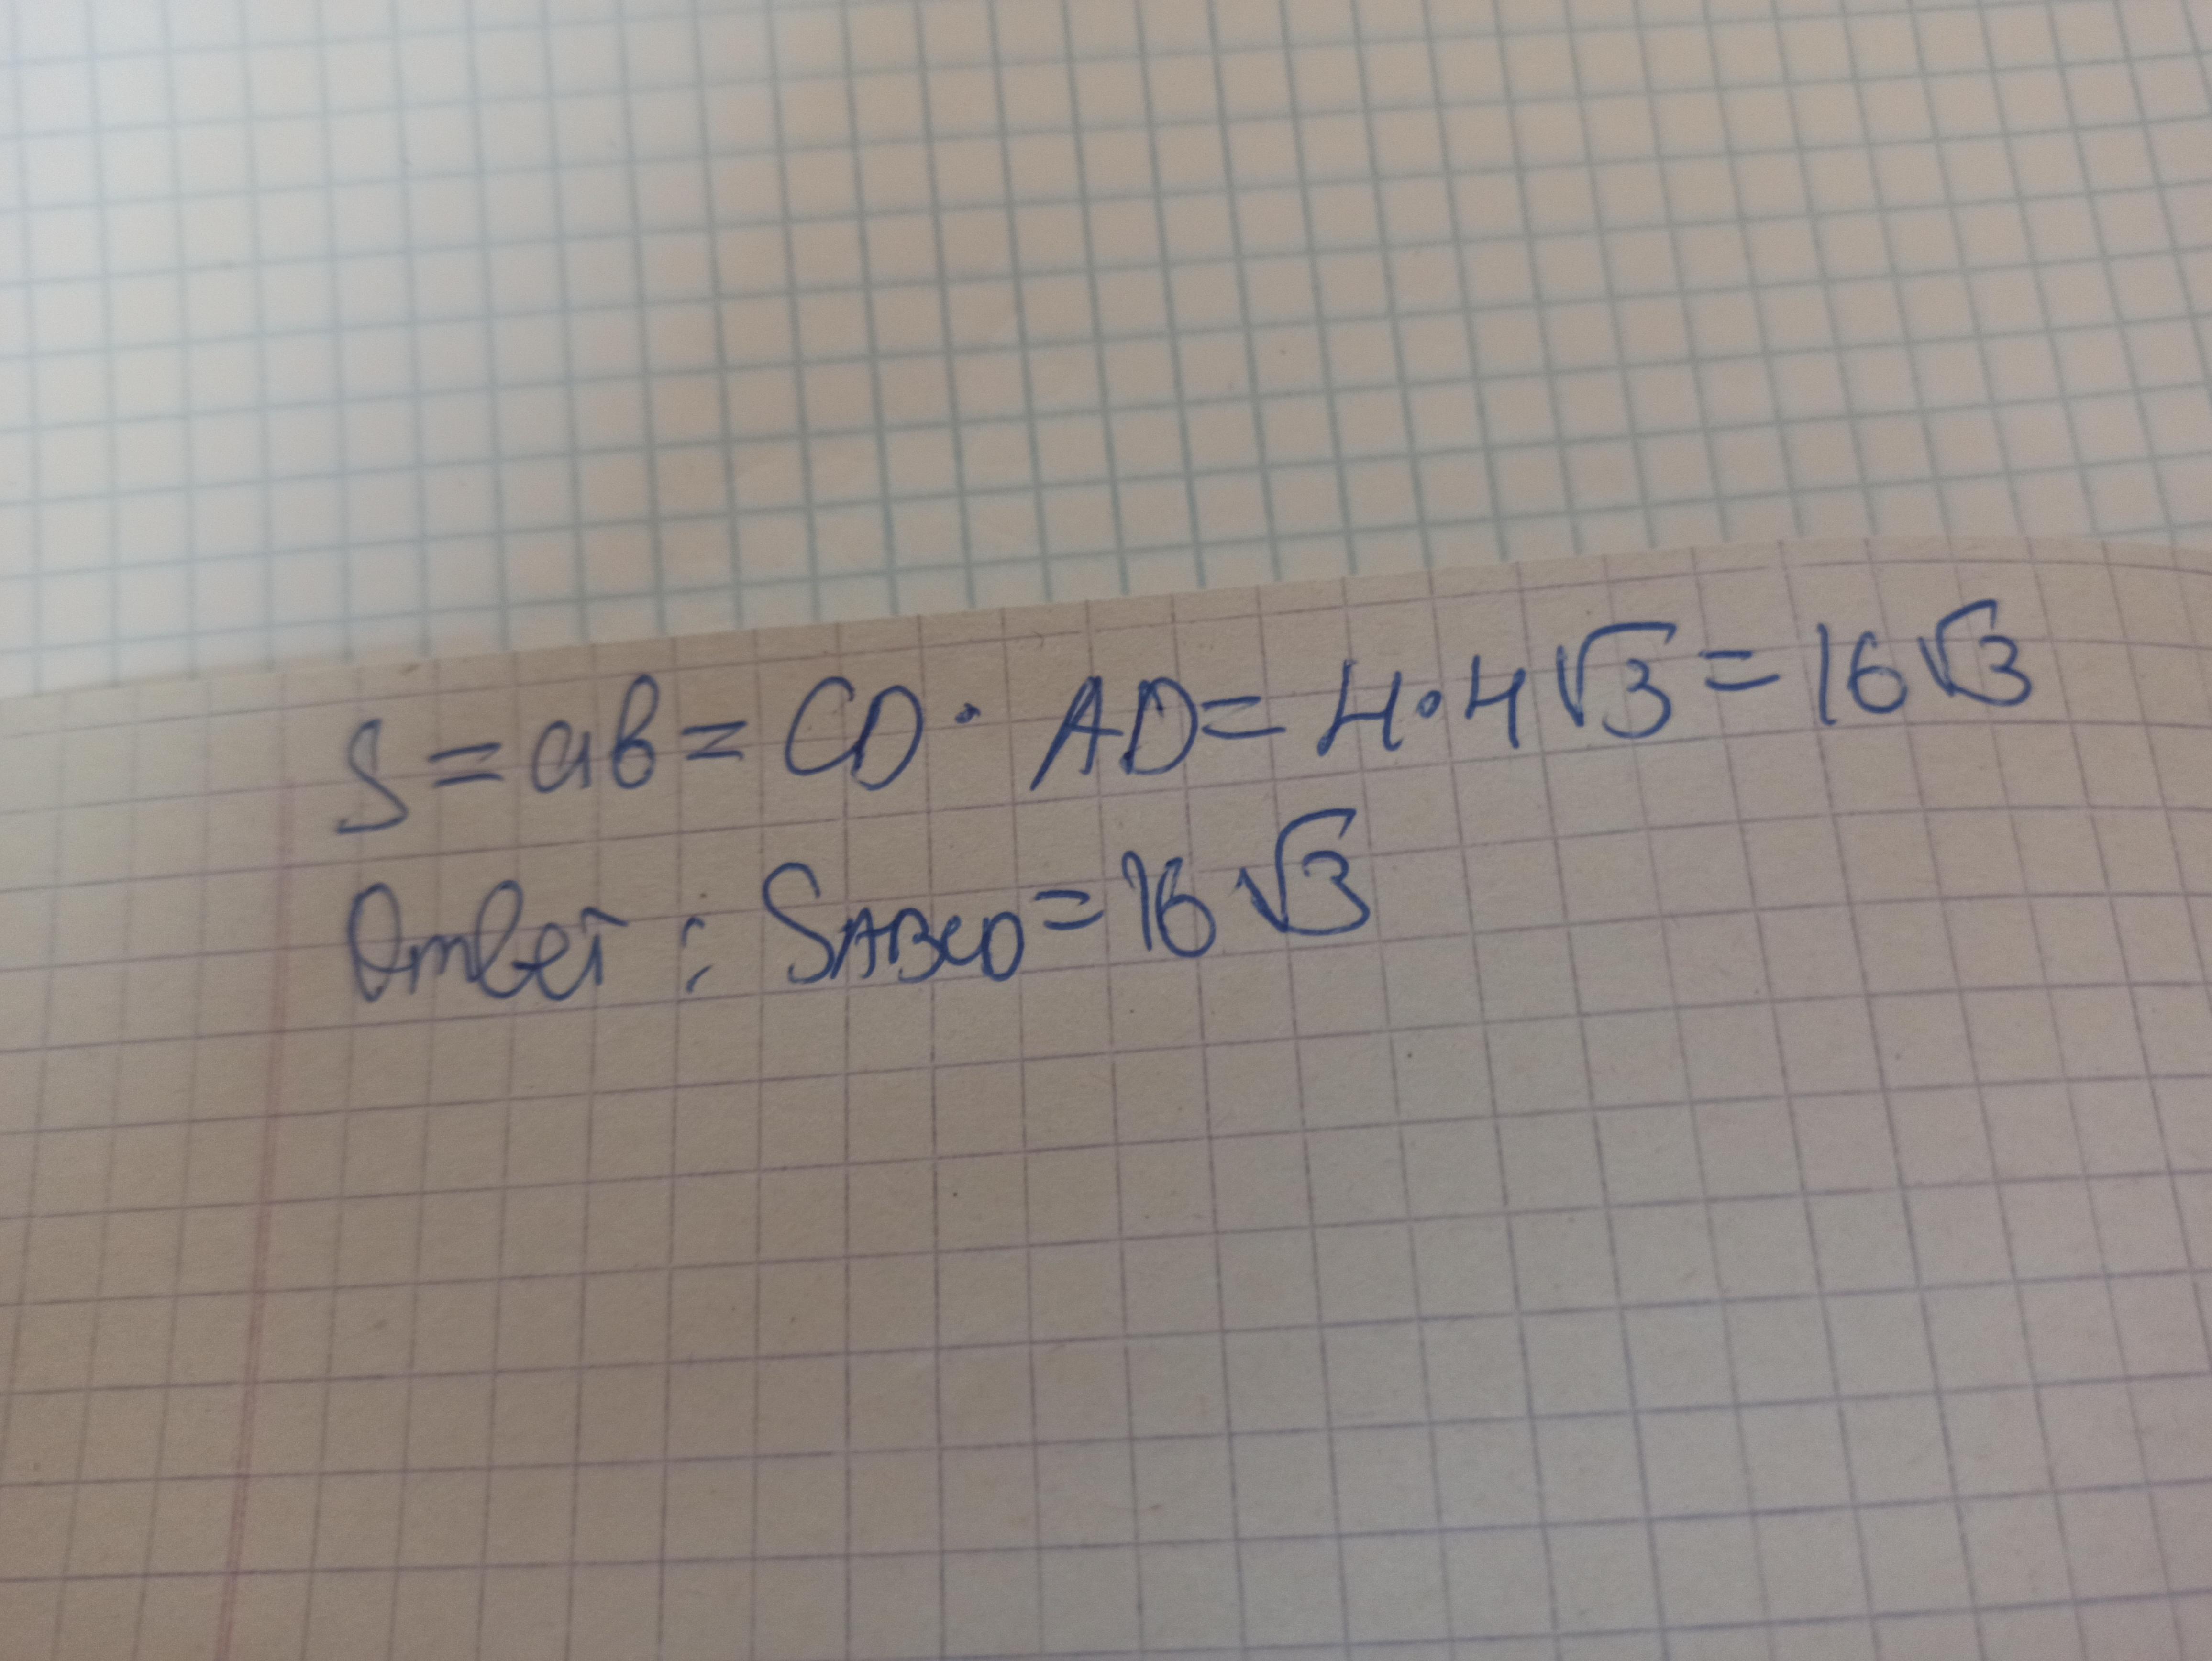 S = ab = CD · AD = 4 · 4√3 = 16√3
Ответ : SABCD = 16√3